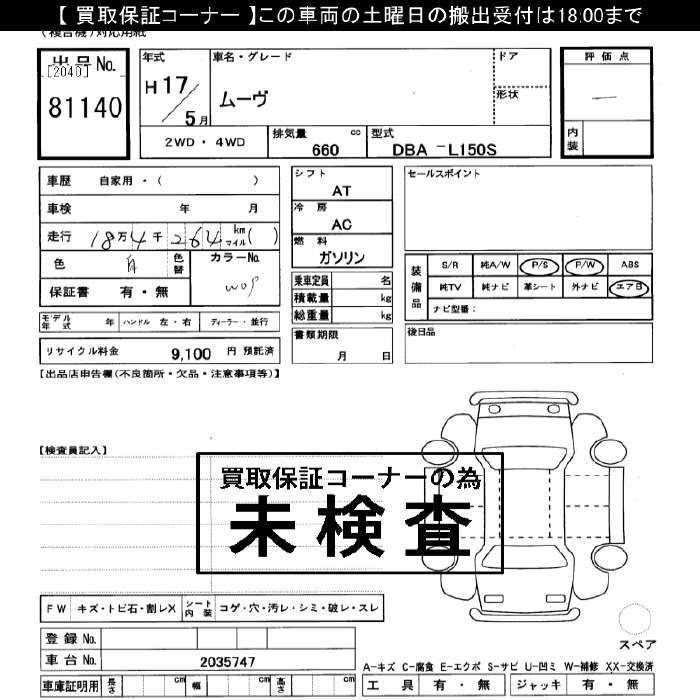 【 買取保証コーナー 】この車両の土曜日の搬出受付は18:00まで
(複合機)対応用紙
出品No.
[2040]
81140
年式
H 17 / 5 月
車名・グレード
ムーヴ
ドア
形状
評価点
—
内装
2WD・4WD
排気量 cc
660
型式
DBA -L150S
車歴 自家用・( )
車検 年 月
走行 18万4千264 km マイル( )
色 白 色替
カラーNo.
W09
保証書 有・無
シフト
AT
冷房
AC
燃料
ガソリン
乗車定員 名
積載量 kg
総重量 kg
セールスポイント
装備品
S/R 純A/W P/S P/W ABS
純TV 純ナビ 革シート 外ナビ エアB
ナビ型番:
モデル年式 年 ハンドル 左・右 ディーラー・並行
リサイクル料金 9,100 円 預託済
書類期限
月 日
後日品
【出品店申告欄(不良箇所・欠品・注意事項等)】
【検査員記入】
買取保証コーナーの為
未検査
FW キズ・トビ石・割レX シート内装 コゲ・穴・汚レ・シミ・破レ・スレ
登録No.
車台No. 2035747
スペア
A-キズ C-腐食 E-エクボ S-サビ U-凹ミ W-補修 XX-交換済
車庫証明用 長さ cm 幅 cm 高さ cm
工具 有・無 ジャッキ 有・無